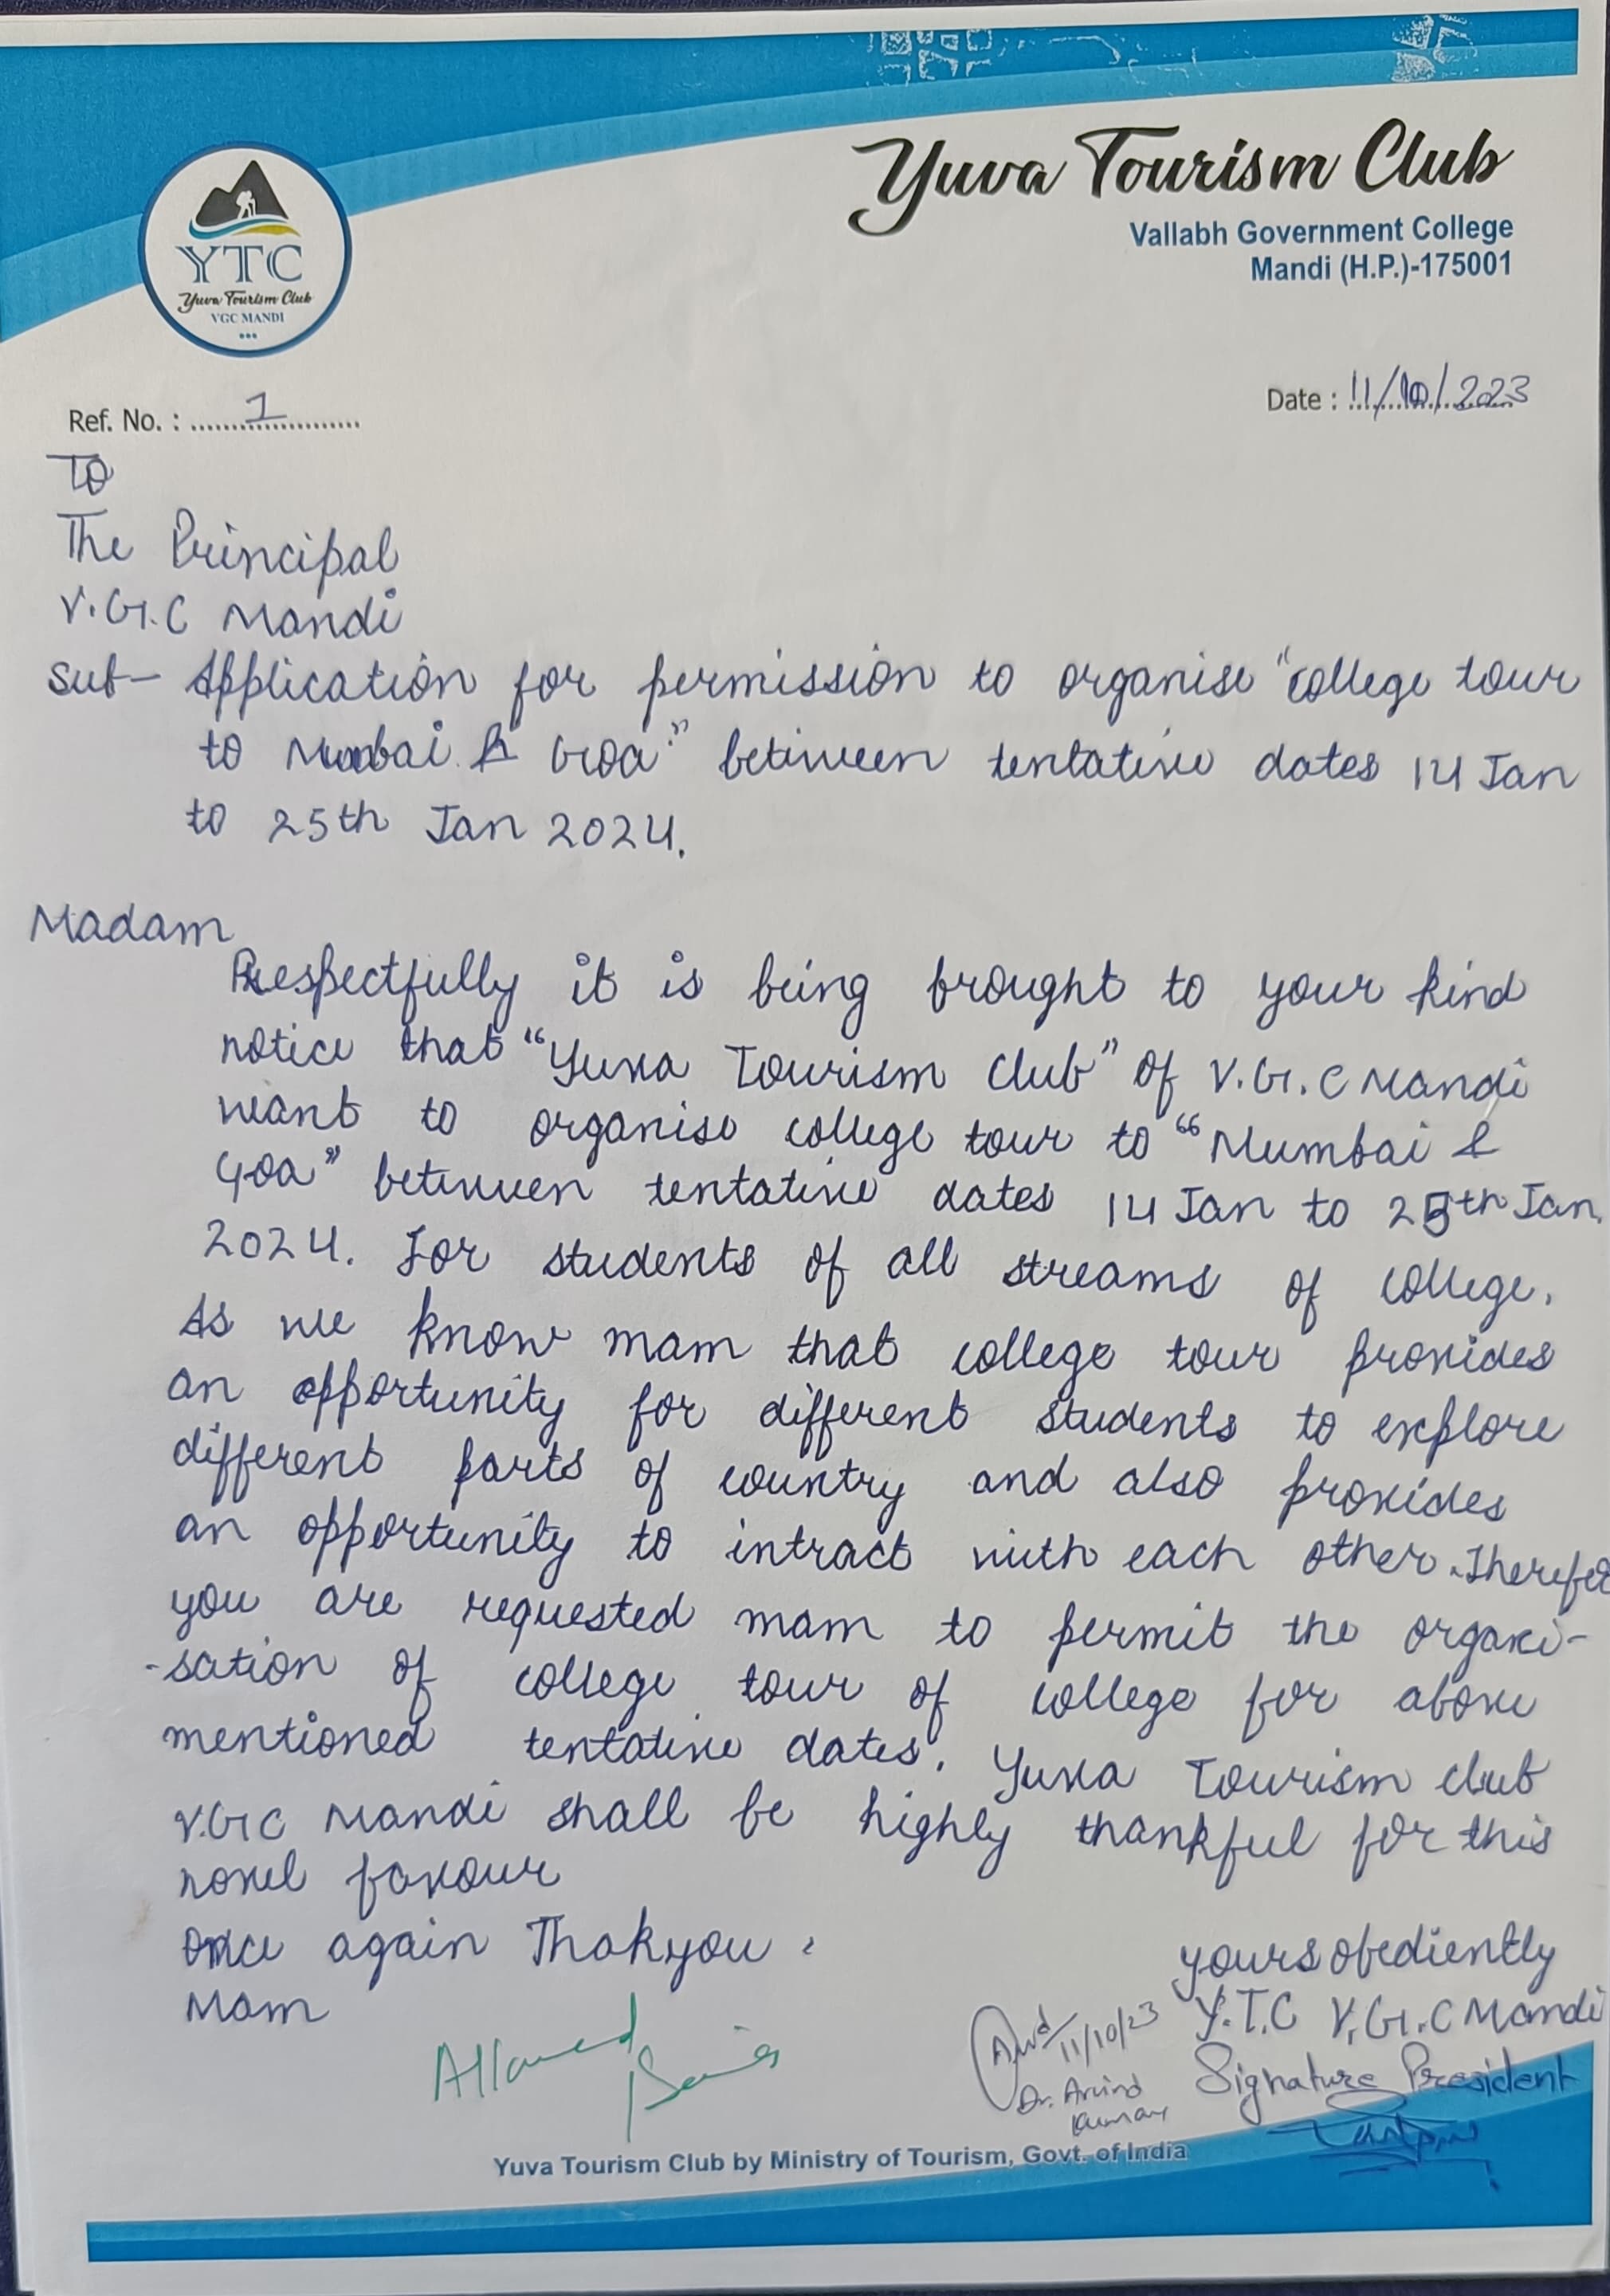 Yuva Tourism Club
Vallabh Government College
Mandi (H.P.)-175001
YTC
Yuva Tourism Club
VGC MANDI
Date : 11/10/2023
Ref. No. : 1
To
The Principal
V.G.C Mandi
Sub- Application for permission to organise "college tour
to Mumbai & Goa." between tentative dates 14 Jan
to 25th Jan 2024.
Madam
Respectfully it is being brought to your kind
notice that "Yuva Tourism Club" of V.G.C Mandi
want to organise college tour to "Mumbai &
Goa" between tentative dates 14 Jan to 25th Jan
2024. For students of all streams of college.
As we know mam that college tour provides
an opportunity for different students to explore
different parts of country and also provides
an opportunity to intract with each other. Therefor
you are requested mam to permit the organi-
-sation of college tour of college for above
mentioned tentative dates. Yuva Tourism club
V.G.C Mandi shall be highly thankful for this
novel favour
once again Thakyou.
Mam
yours obediently
Y.T.C V.G.C Mandi
Signature President
Allowed
11/10/23
Dr. Arvind
Kumar
Yuva Tourism Club by Ministry of Tourism, Govt. of India